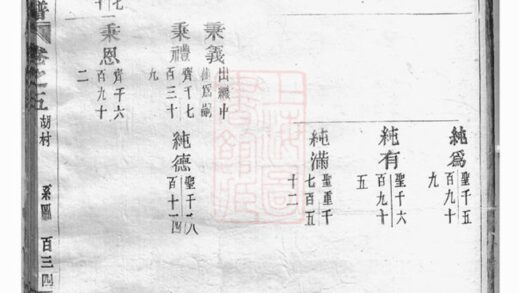 純為 聖千五百九十九
純有 聖千六百九十五
純滿 聖重千七百五十二
秉義 出繼中
秉禮 齊千七百三十九
純德 聖千八百十四
秉恩 齊千六百九十二
譜 卷之五 胡村 系圖 百三四